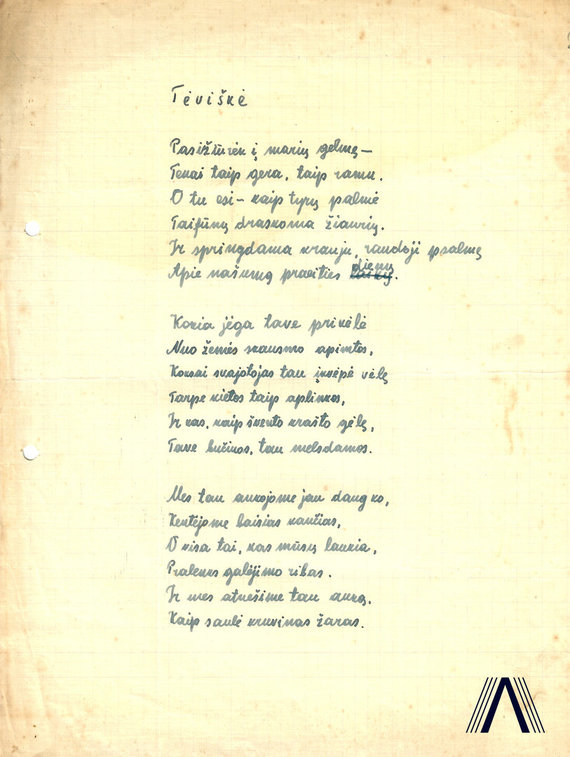 Tėviškė
Pasižiūrėk į marių gelmę –
Tenai taip gera, taip ramu.
O tu esi – kaip tyrų palmė
Taifūnų draskoma žiaurių.
Ir springdama krauju, raudoji psalmę
Apie našumą praeities dienų.
Kokia jėga tave prikėlė
Nuo žemės skausmo apimtos,
Koksai svajotojas tau įkvėpė vėlę
Tarpe kietos taip aplinkos,
Ir kas, kaip švento krašto gėlę,
Tave bučiuos, tau melsdamos.
Mes tau aukojome jau daug ko,
Kentėjome baisias kančias,
O visa tai, kas mūsų laukia,
Praleks galėjimo ribas.
Ir mes atnešime tau auką,
Kaip saulė kruvinas žaras.